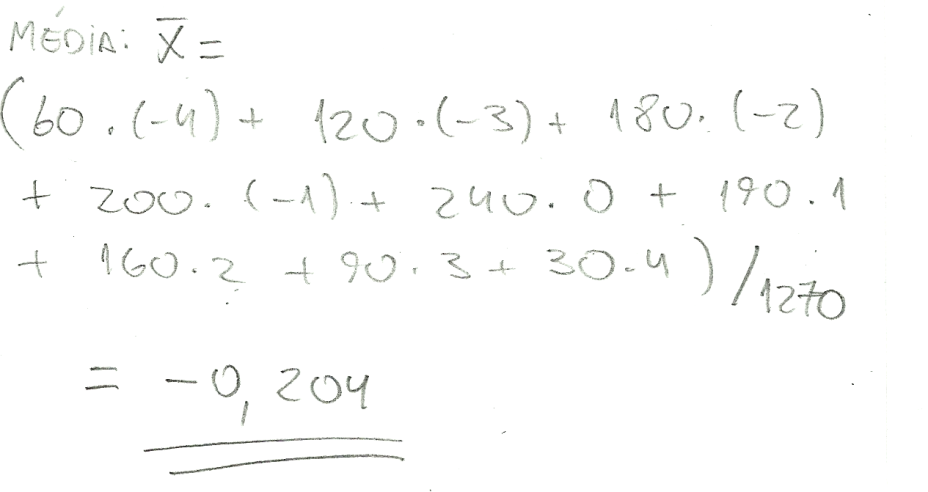 MÉDIA: X̅ =
(60.(-4) + 120.(-3) + 180.(-2)
+ 200.(-1) + 240.0 + 190.1
+ 160.2 + 90.3 + 30.4)/1270
= -0,204